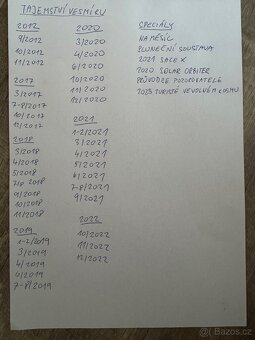 TAJEMSTVÍ VESMÍRU
2012
9/2012
10/2012
11/2012
2017
3/2017
7-8/2017
10/2017
12/2017
2018
3/2018
4/2018
5/2018
7-8 2018
9/2018
10/2018
11/2018
2019
1-2/2019
3/2019
4/2019
6/2019
7-8/2019
2020
3/2020
4/2020
6/2020
10/2020
11/2020
12/2020
2021
1-2/2021
3/2021
4/2021
5/2021
6/2021
7-8/2021
9/2021
2022
10/2022
11/2022
12/2022
SPECIÁLY
NA MĚSÍC
SLUNEČNÍ SOUSTAVA
2021 SPACE X
2020 SOLAR ORBITER
PRŮVODCE POZOROVATELE
2023 TURISTÉ VE VOLNÉM KOSMU
Bazos.cz